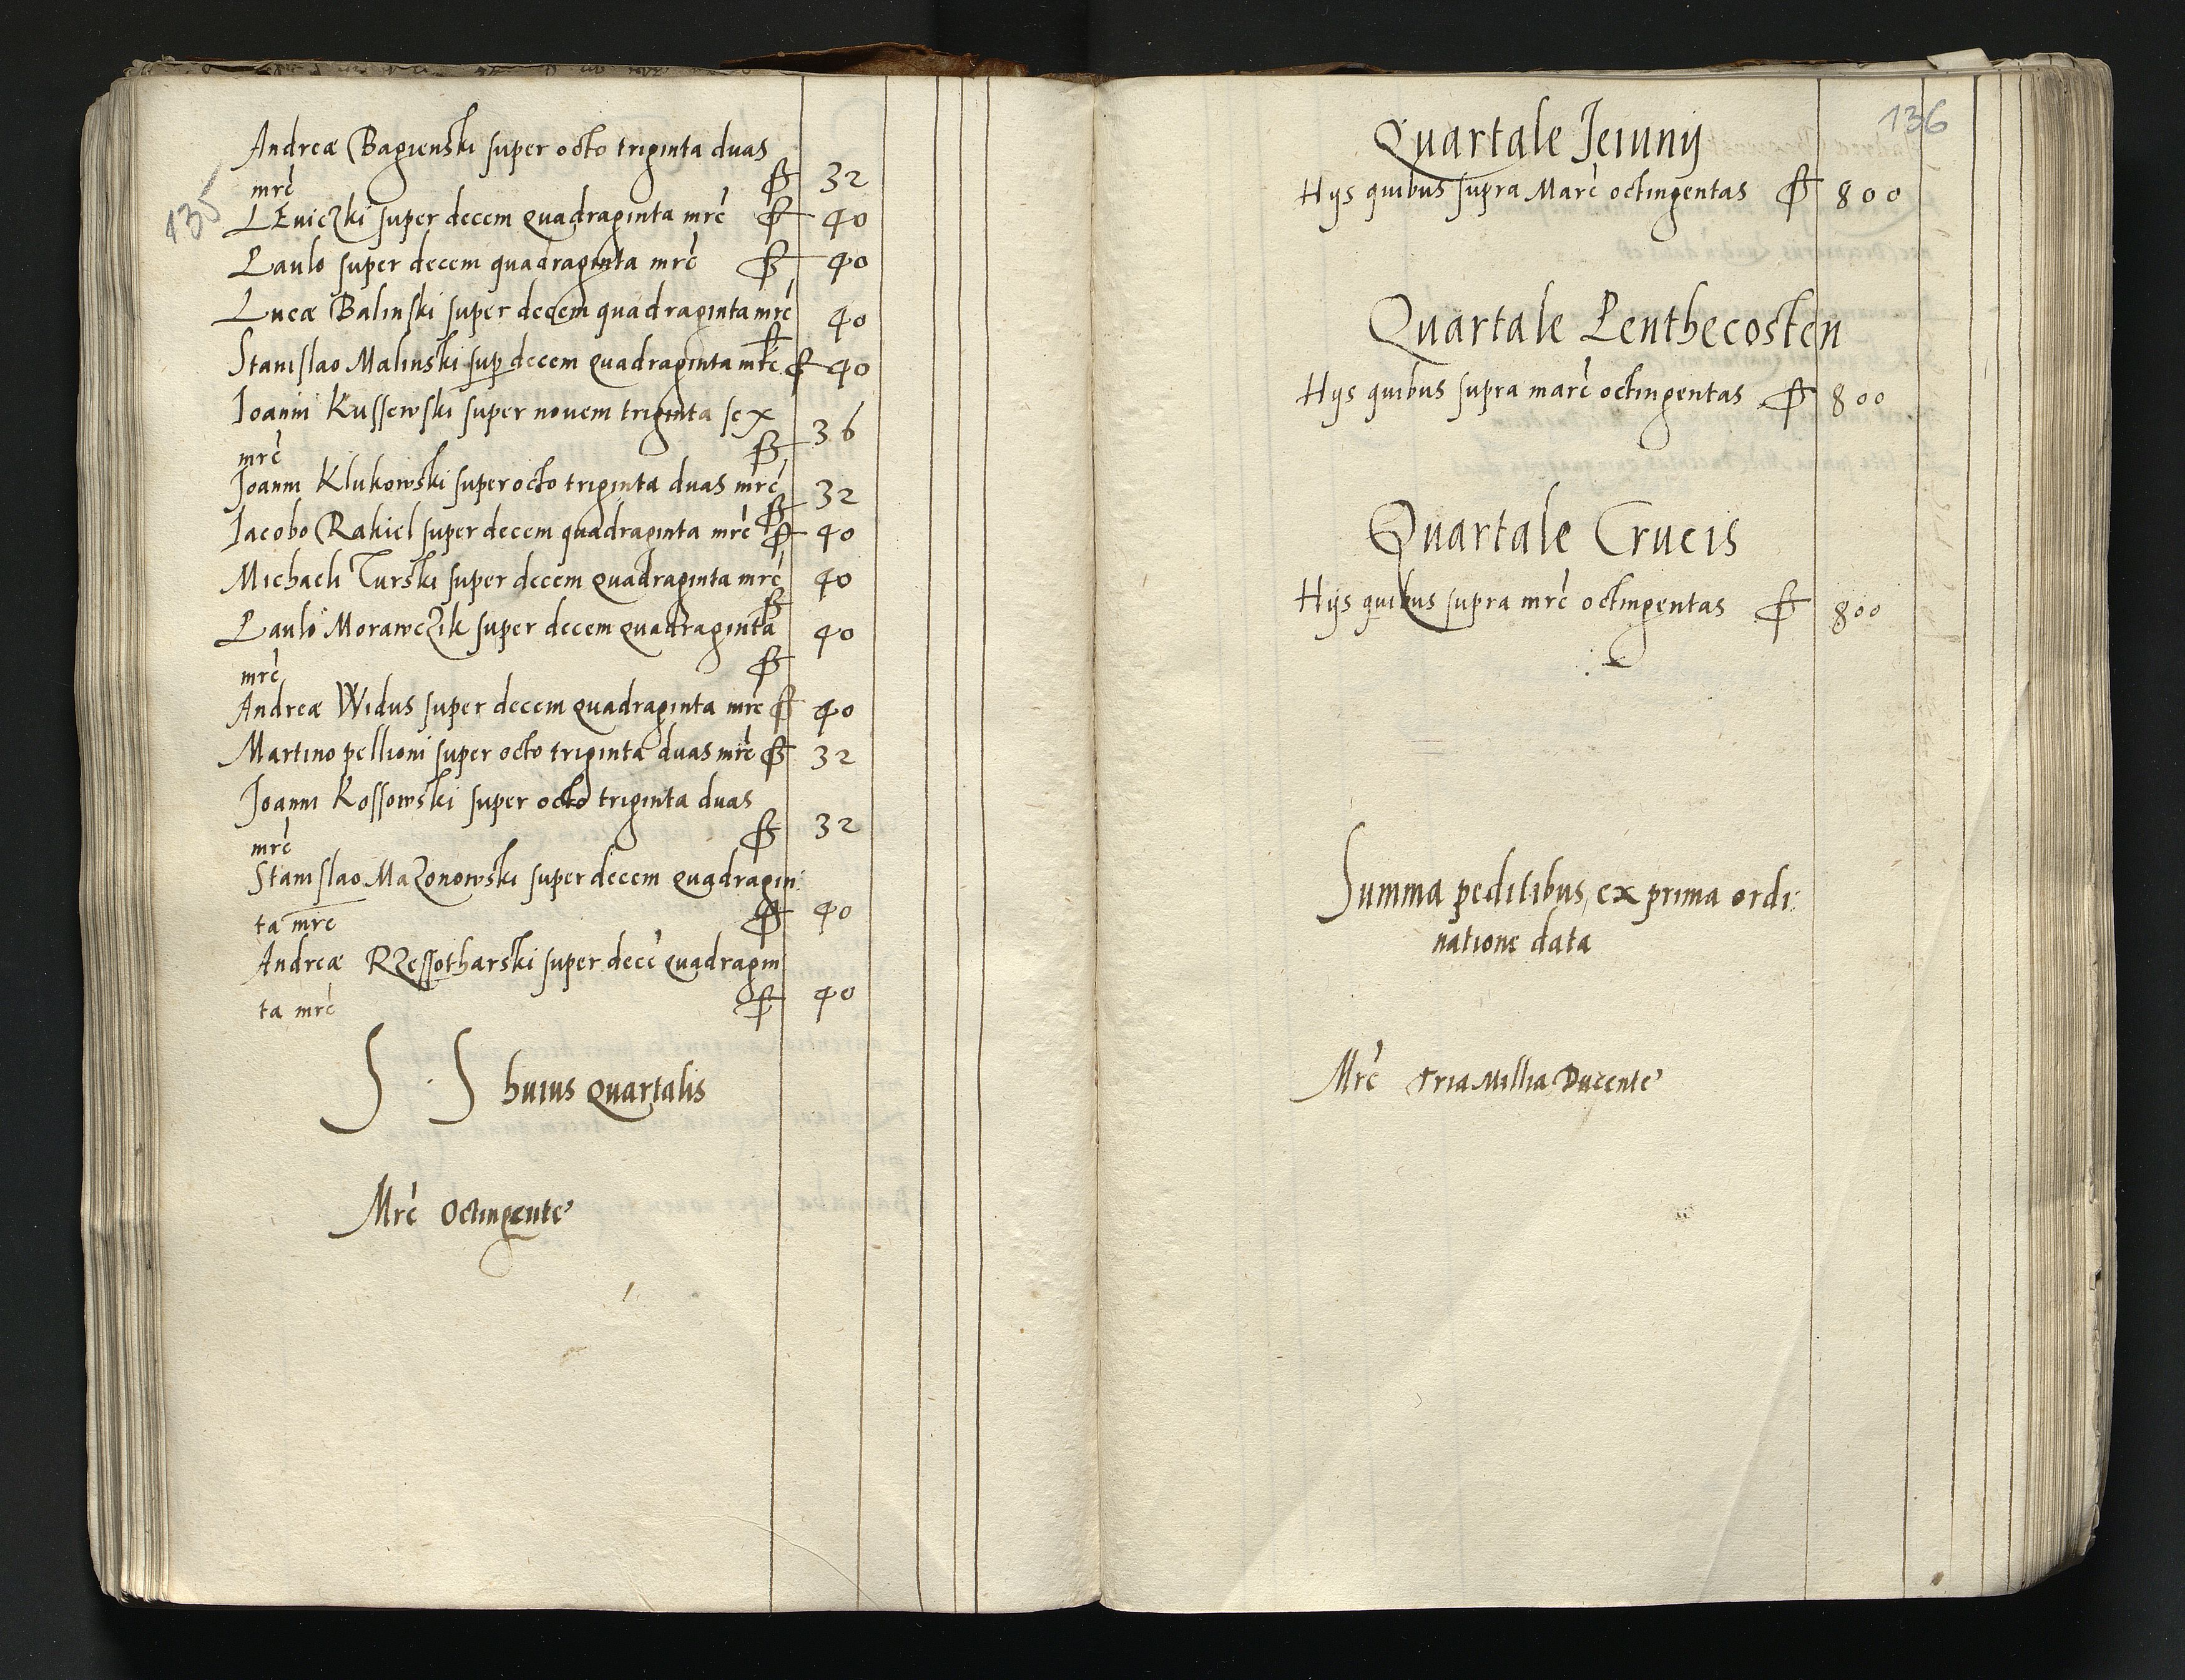 Andreæ Bagienski super octo triginta duas
mrć ₰ 32
135
LEuiczki super decem quadraginta mrć ₰ 40
Paulo super decem quadraginta mrć ₰ 40
Lucæ Balinski super decem quadraginta mrć ₰ 40
Stanislao Malinski sup decem quadraginta mrć ₰ 40
Ioanni Kussewski super nouem triginta sex
mrć ₰ 36
Joanni Klukowski super octo triginta duas mrć ₰ 32
Iacobo Rakiel super decem quadraginta mrć ₰ 40
Michaeli Turski super decem quadraginta mrć ₰ 40
Paulo Morawczik super decem quadraginta 40
mrć ₰
Andreæ Widus super decem quadraginta mrć ₰ 40
Martino pellioni super octo triginta duas mrć ₰ 32
Joanni Kossowski super octo triginta duas
mrć ₰ 32
Stanislao Mazonowski super decem quadragin:
ta mrć ₰ 40
Andreæ Rzessotharski super decē quadragin
ta mrć ₰ 40
S . S huius quartalis
Mrć Octingente
136
Quartale Jeiunij
Hijs quibus supra Marć octingentas ₰ 800
Quartale Penthecosten
Hijs quibus supra marć octingentas ₰ 800
Quartale Crucis
Hijs quibus supra mrć octingentas ₰ 800
Summa peditibus, ex prima ordi:
natione data
Mrć tria Millia Ducente